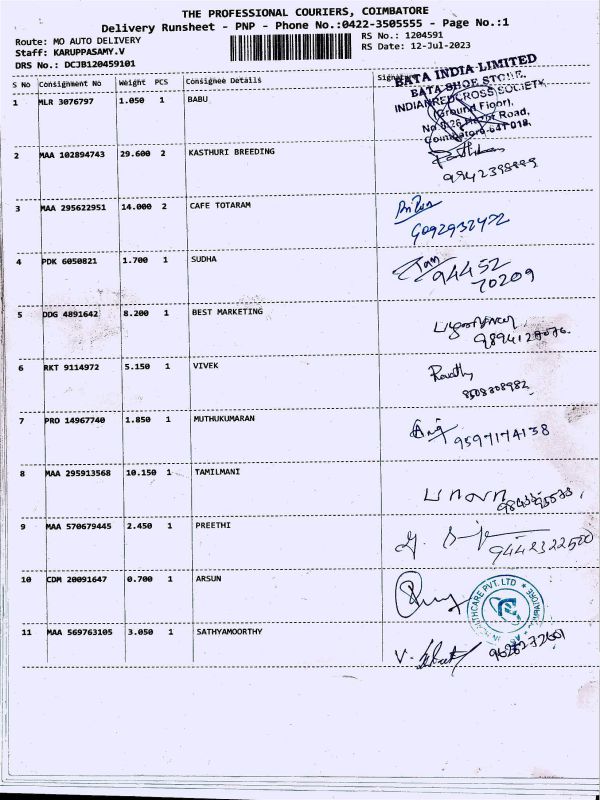 THE PROFESSIONAL COURIERS, COIMBATORE
Delivery Runsheet - PNP - Phone No.:0422-3505555 - Page No.:1
Route: MO AUTO DELIVERY
RS No.: 1204591
Staff: KARUPPASAMY.V
RS Date: 12-Jul-2023
DRS No.: DCJB120459101
S No Consignment No Weight PCS Consignee Details
BATA INDIA LIMITED
BATA SHOE STORE,
INDIANREDCROSS SOCIETY
(Ground Floor),
Road,
1 MLR 3076797 1.050 1 BABU
2 MAA 102894743 29.600 2 KASTHURI BREEDING
9942398999
3 MAA 295622951 14.000 2 CAFE TOTARAM
9092932472
4 PDK 6050821 1.700 1 SUDHA
94452
70209
5 DDG 4891642 8.200 1 BEST MARKETING
6 RKT 9114972 5.150 1 VIVEK
8508308982
7 PRO 14967740 1.850 1 MUTHUKUMARAN
9597174138
8 MAA 295913568 10.150 1 TAMILMANI
9 MAA 570679445 2.450 1 PREETHI
9442322500
10 CDM 20091647 0.700 1 ARSUN
HEALTHCARE PVT. LTD
11 MAA 569763105 3.050 1 SATHYAMOORTHY